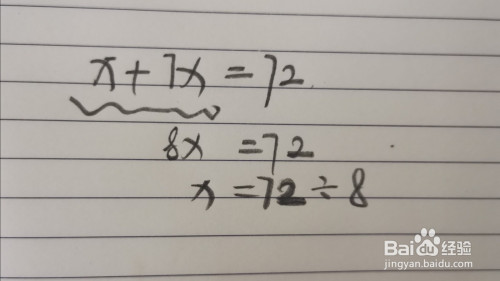 x+7x=72
8x=72
x=72÷8
Baidu经验
jingyan.baidu.com